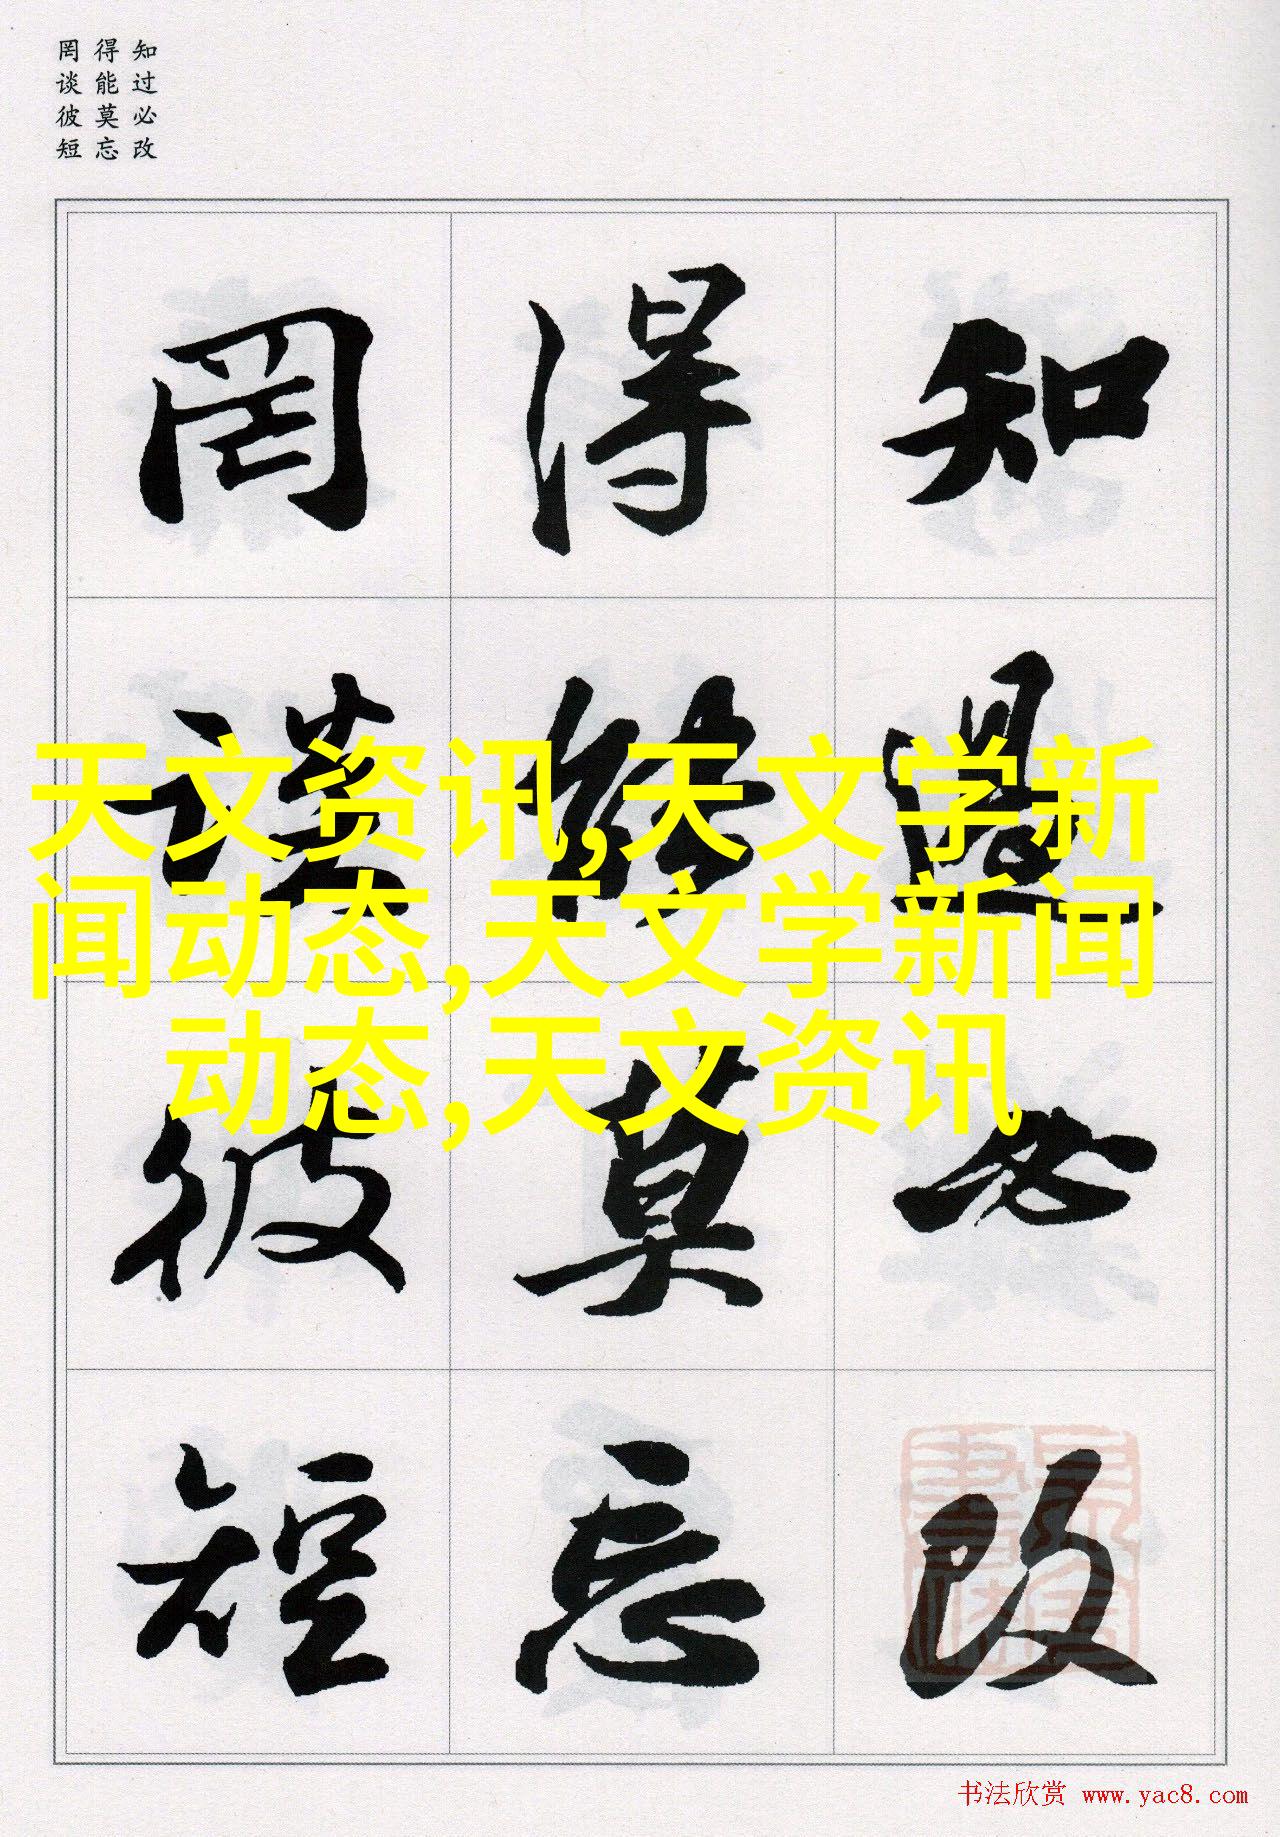 知过必改
得能莫忘
罔谈彼短
罔得知
谈能过
彼莫必
短忘改
天文资讯,天文学新
闻动态,天文学新闻
动态,天文资讯
书法欣赏 www.yac8.com